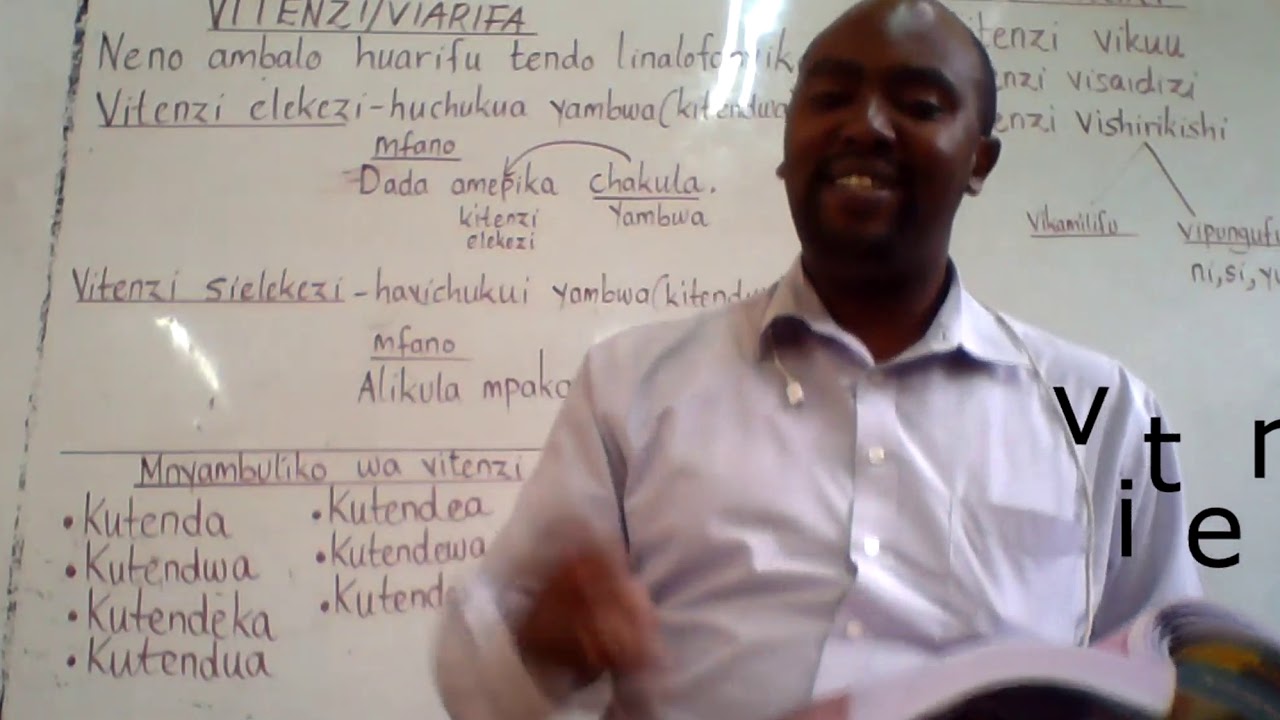 VITENZI/VIARIFA
Neno ambalo huarifu tendo
Vitenzi elekezi-huchukua yambwa(kitendwa
mfano
Dada amepika chakula.
kitenzi Yambwa
elekezi
Vitenzi sielekezi-havichukui yambwa
mfano
Alikula
Mnyambuliko wa vitenzi
•Kutenda
•Kutendwa
•Kutendeka
•Kutendua
•Kutendea
•Kutendewa
vikuu
visaidizi
Vishirikishi
Vikamilifu Vipungufu
ni, si,
v i t e n